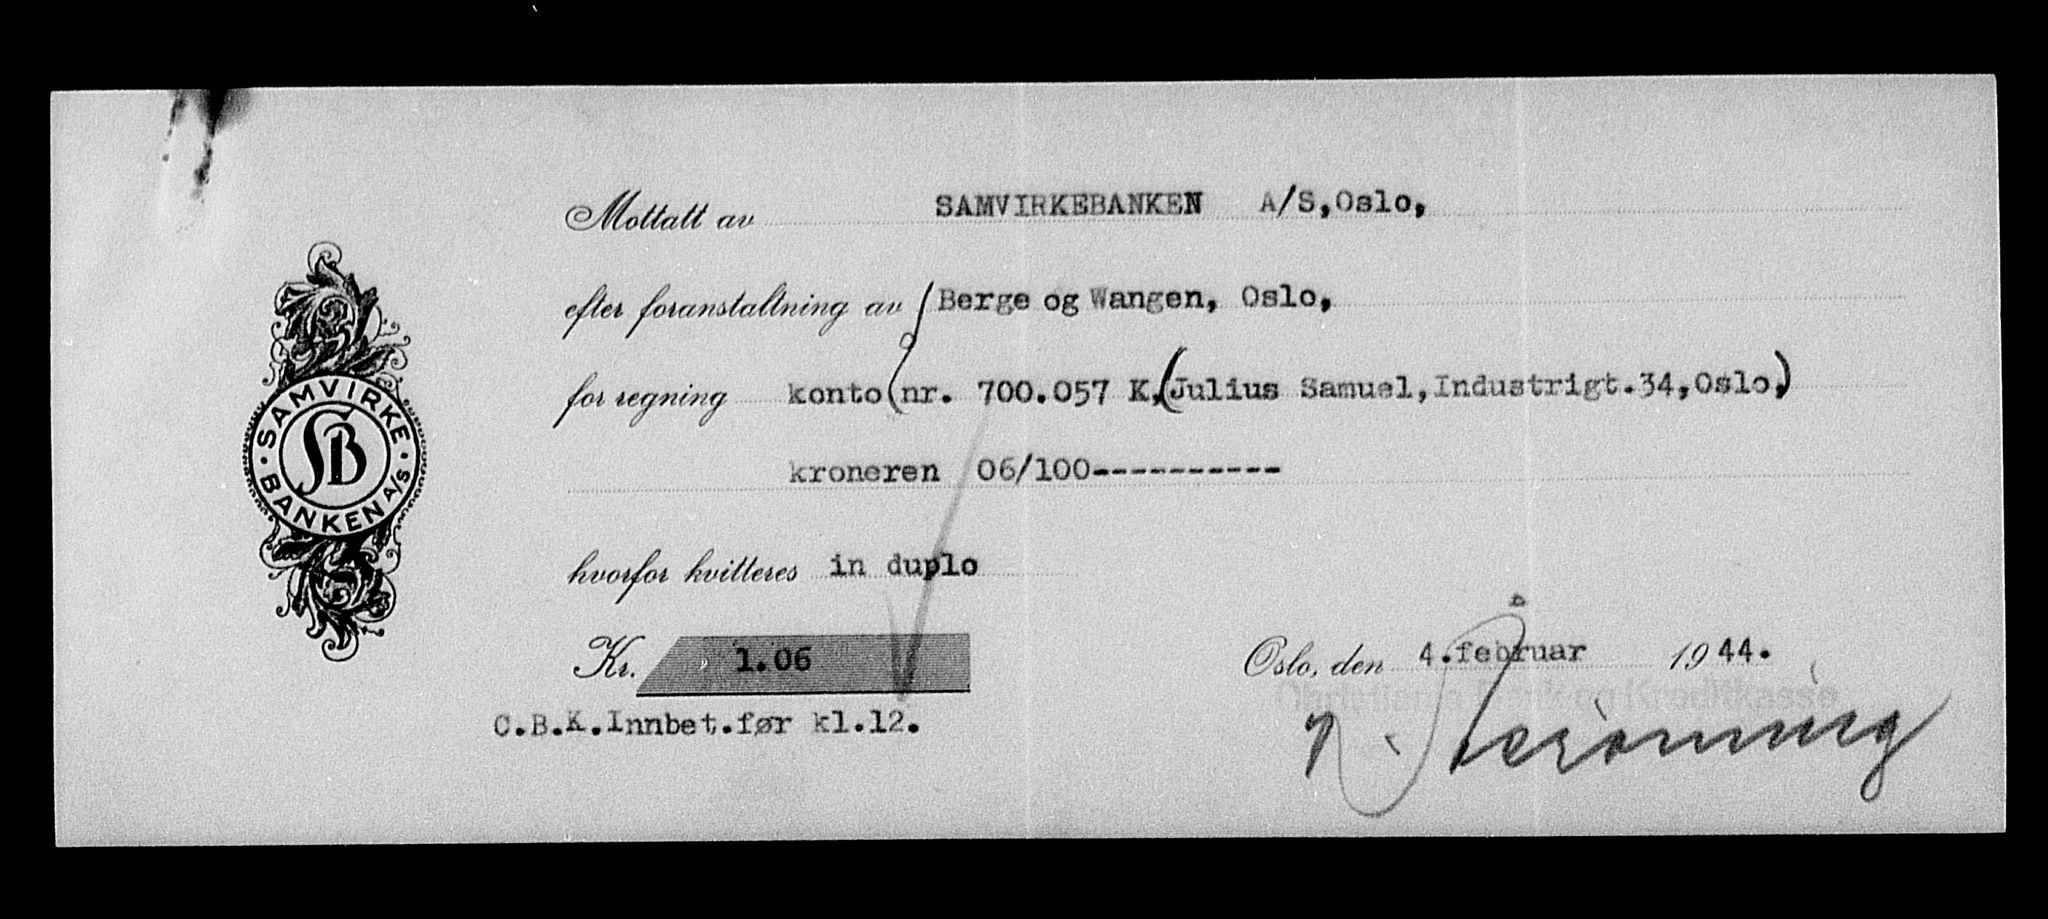 SAMVIRKE BANKEN A/S
SB
Mottatt av SAMVIRKEBANKEN A/S,Oslo,
efter foranstaltning av Berge og Wangen, Oslo,
for regning konto (nr. 700.057 K.(Julius Samuel,Industrigt.34,Oslo,)
kroneren 06/100----------
hvorfor kvitteres in duplo
Kr. 1.06
Oslo, den 4.februar 1944.
Christiania Bank og Kreditkasse
C.B.K.Innbet.før kl.12.